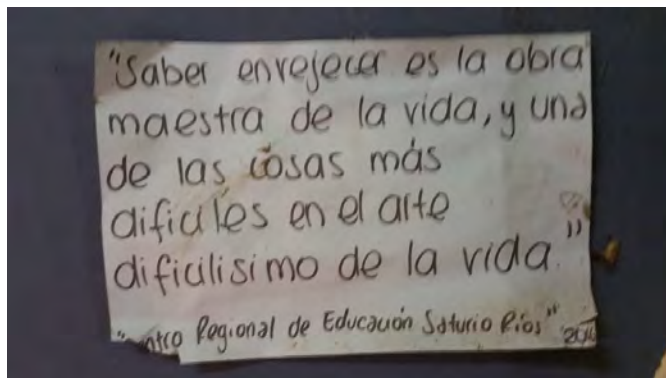 "Saber envejecer es la obra
maestra de la vida, y una
de las cosas más
dificiles en el arte
dificilisimo de la vida."
"entro Regional de Educación Saturio Ríos"